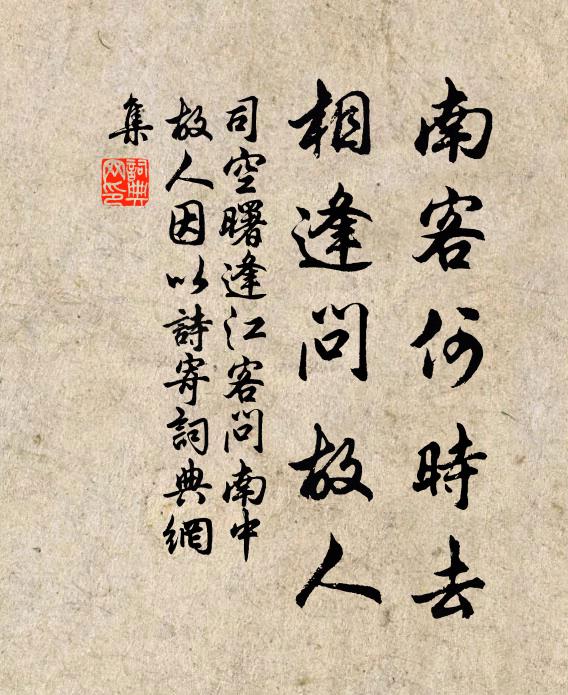 南客何時去
相逢問故人
司空曙逢江客問南中
故人因以詩寄詞典網
集
詞典
网印